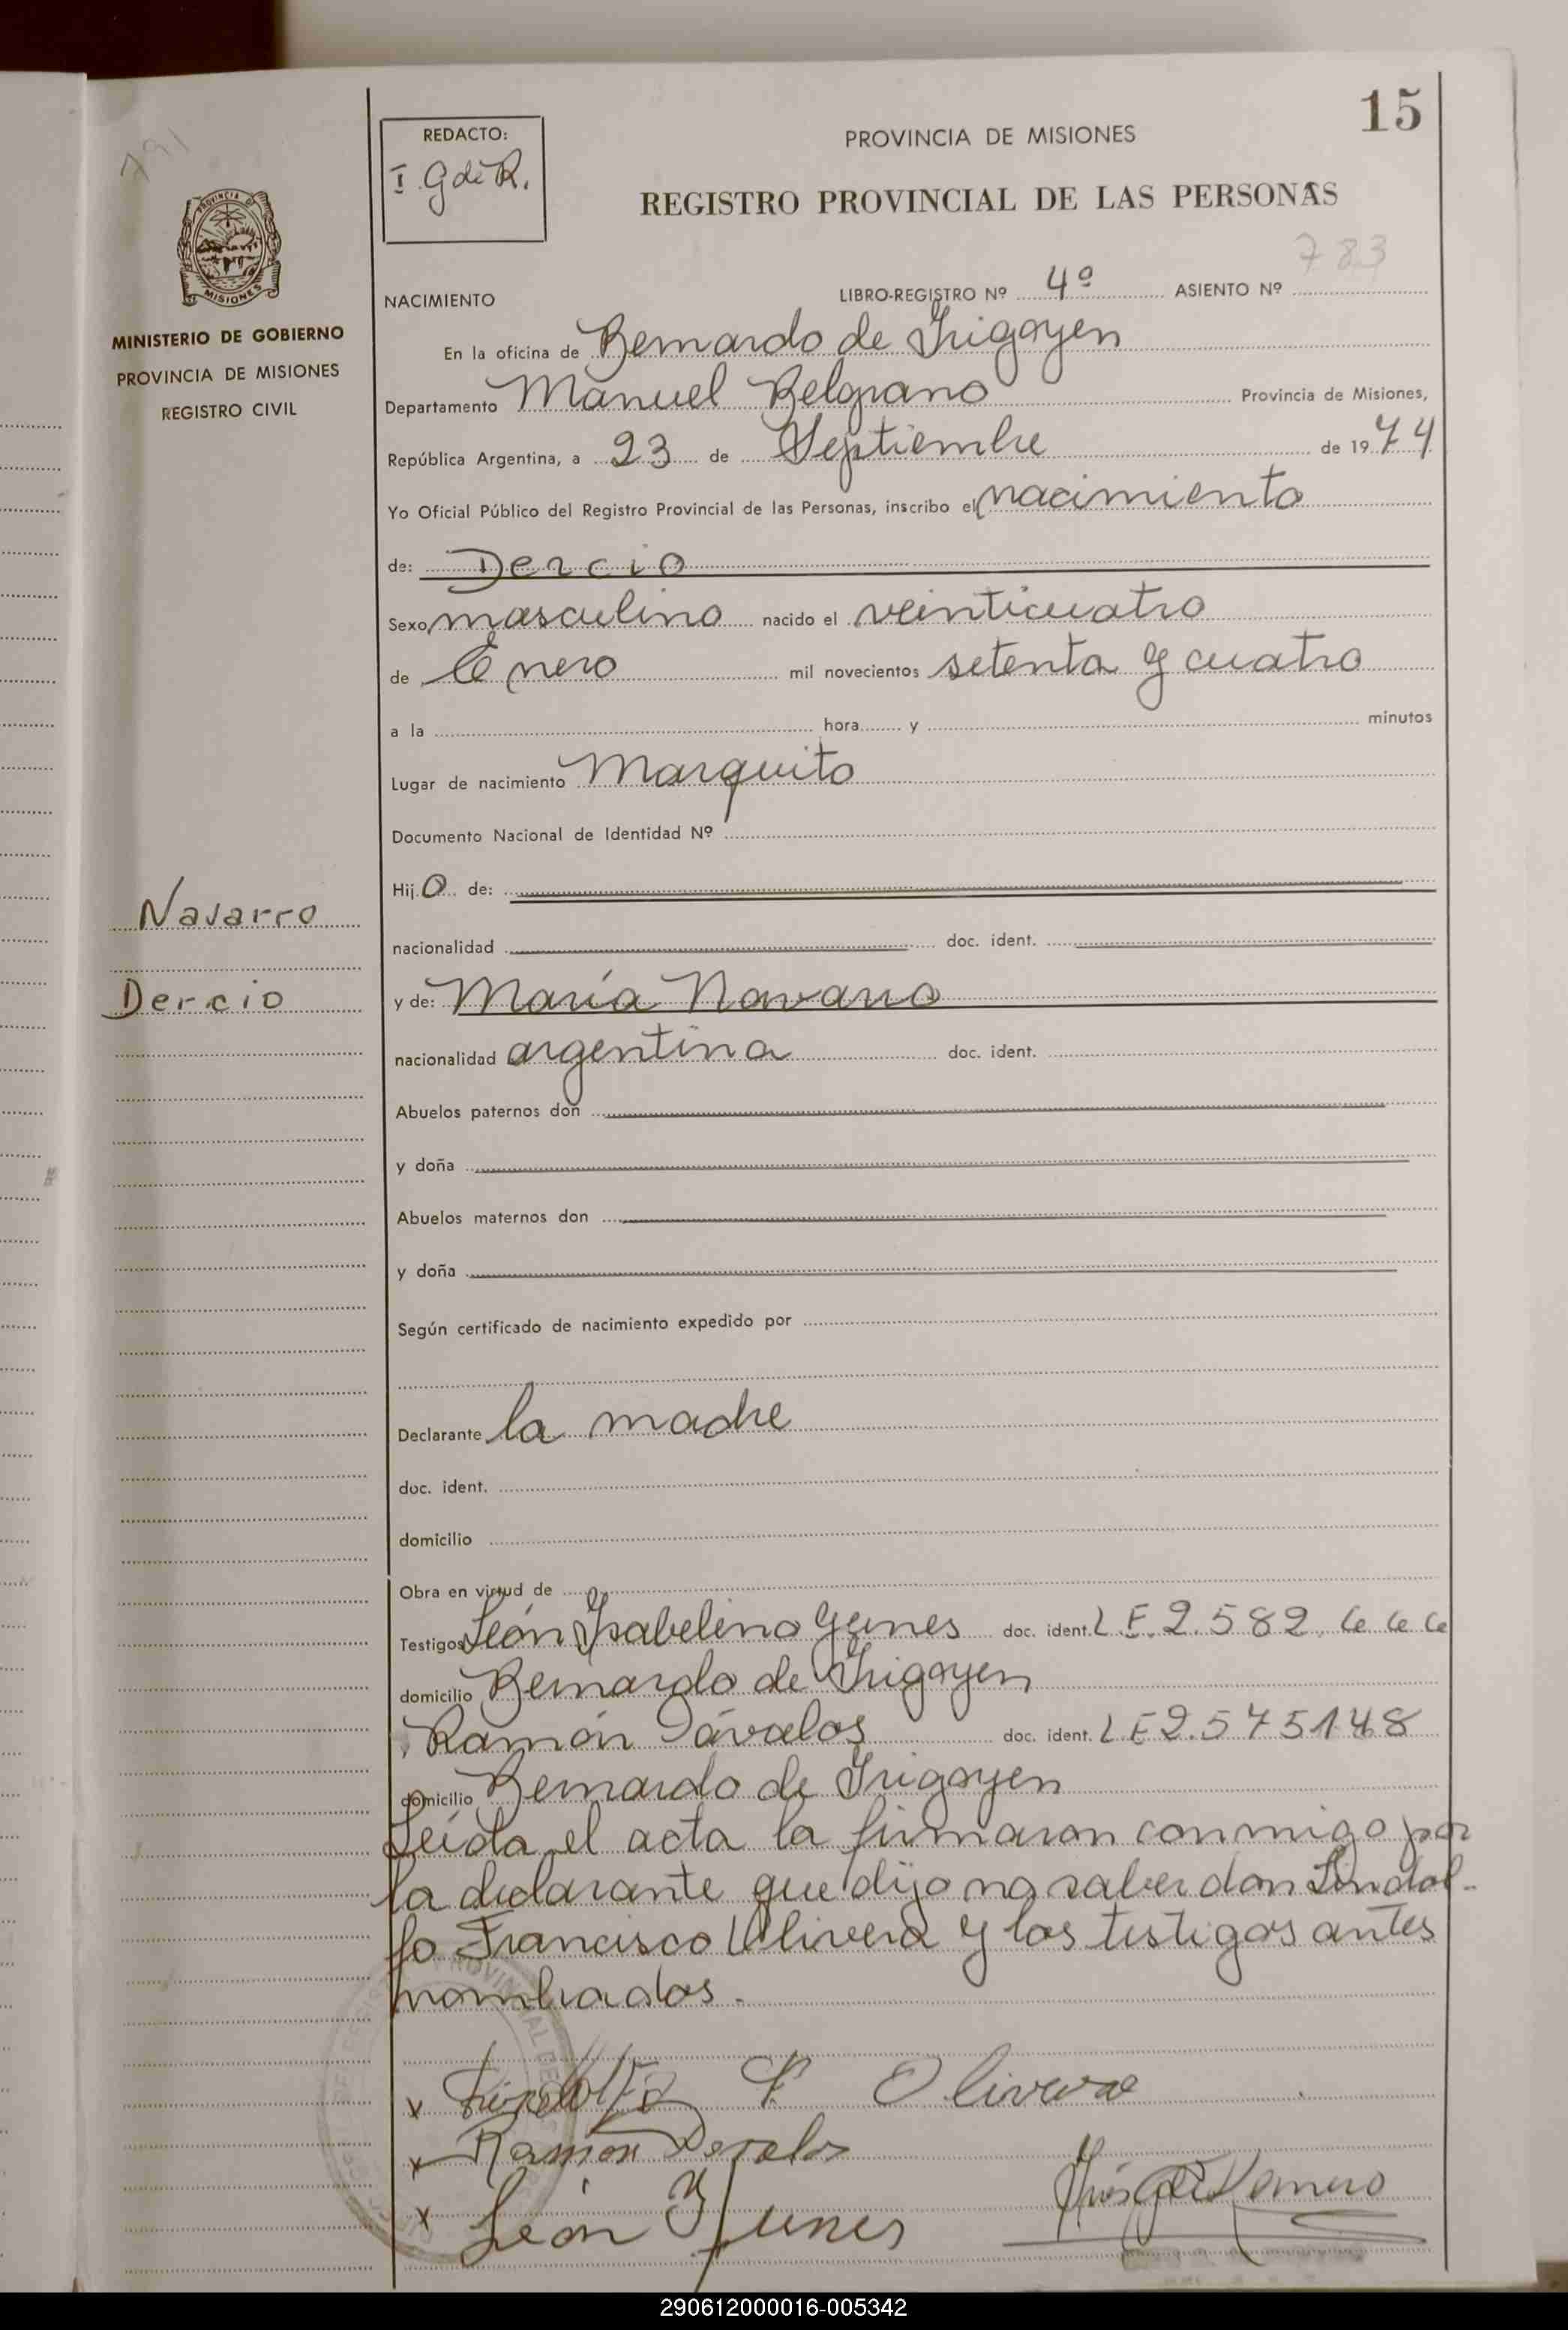 15
791
REDACTO:
I. G de R.
PROVINCIA DE MISIONES
REGISTRO PROVINCIAL DE LAS PERSONAS
783
PROVINCIA D
MISIONES
MINISTERIO DE GOBIERNO
PROVINCIA DE MISIONES
REGISTRO CIVIL
NACIMIENTO LIBRO-REGISTRO Nº 4º ASIENTO Nº
En la oficina de Bernardo de Irigoyen
Departamento Manuel Belgrano Provincia de Misiones,
República Argentina, a 23 de Septiembre de 1974
Yo Oficial Público del Registro Provincial de las Personas, inscribo el nacimiento
de: Dercio
Sexo masculino nacido el veinticuatro
de Enero mil novecientos setenta y cuatro
a la hora y minutos
Lugar de nacimiento Marquito
Documento Nacional de Identidad Nº
Hijo de:
Navarro
nacionalidad doc. ident.
Dercio
y de: María Navarro
nacionalidad argentina doc. ident.
Abuelos paternos don
y doña
Abuelos maternos don
y doña
Según certificado de nacimiento expedido por
Declarante la madre
doc. ident.
domicilio
Obra en virtud de
Testigos León Ysabelino Yunes doc. ident. L E. 2.582.666
domicilio Bernardo de Irigoyen
Ramón Dávalos doc. ident. L E 2.575148
domicilio Bernardo de Irigoyen
Leída el acta la firmaron conmigo por
la declarante que dijo no saber don Lindol-
fo Francisco Olivera y los testigos antes
nombrados.
x Lindolfo F Olivera
x Ramon Davalos
x León Y Yunes
290612000016-005342